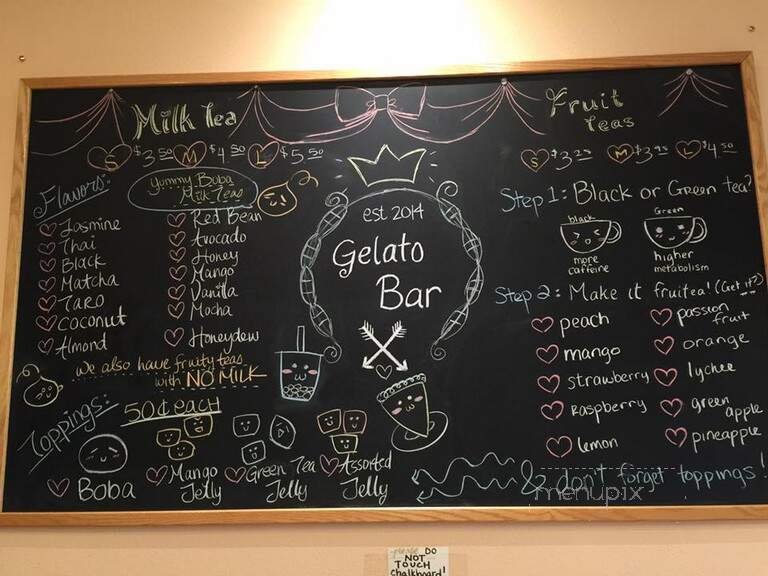 Milk Tea
S $3.50 M $4.50 L $5.50
Flavors:
Yummy Boba
Milk Teas
Jasmine
Thai
Black
Matcha
Taro
Coconut
Almond
Red Bean
Avocado
Honey
Mango
Vanilla
Mocha
Honeydew
we also have fruity teas
with NO MILK
Toppings:
50¢ each
Boba
Mango
Jelly
Green Tea
Jelly
Assorted
Jelly
est. 2014
Gelato
Bar
Fruit
Teas
S $3.25 M $3.95 L $4.50
Step 1: Black or Green tea?
black
more
caffeine
Green
higher
metabolism
Step 2: Make it fruitea! (Get it?)
peach
mango
strawberry
Raspberry
lemon
passion
fruit
orange
lychee
green
apple
pineapple
& don't forget toppings!
menupix
please DO
NOT
TOUCH
chalkboard!